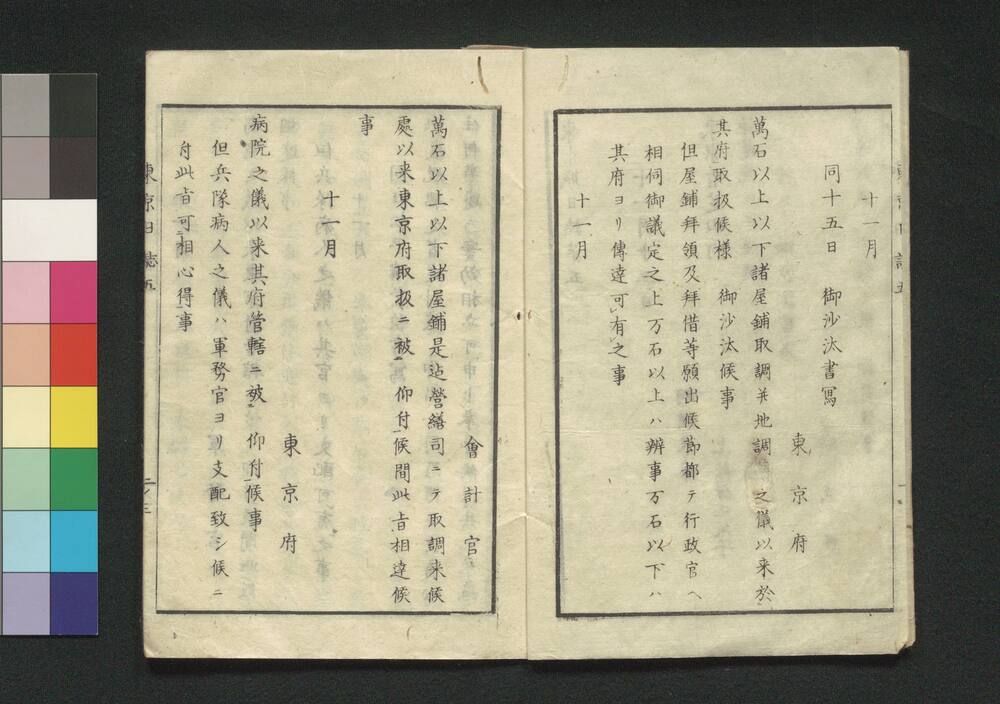 十一月
同十五日　御沙汰書寫
東京府
萬石以上以下諸屋鋪取調并地調　之儀以来於
其府取扱候様　御沙汰候事
但屋鋪拜領及拜借等願出候節都テ行政官ヘ
相伺御議定之上万石以上ハ辨事万石以下ハ
其府ヨリ傳達可有之事
十一月
會計官
萬石以上以下諸屋鋪是迠營繕司ニテ取調来候
處以来東京府取扱ニ被　仰付候間此旨相達候
事
十一月
東京府
病院之儀以来其府管轄ニ被　仰付候事
但兵隊病人之儀ハ軍務官ヨリ支配致シ候ニ
付此旨可相心得事
東京日誌五